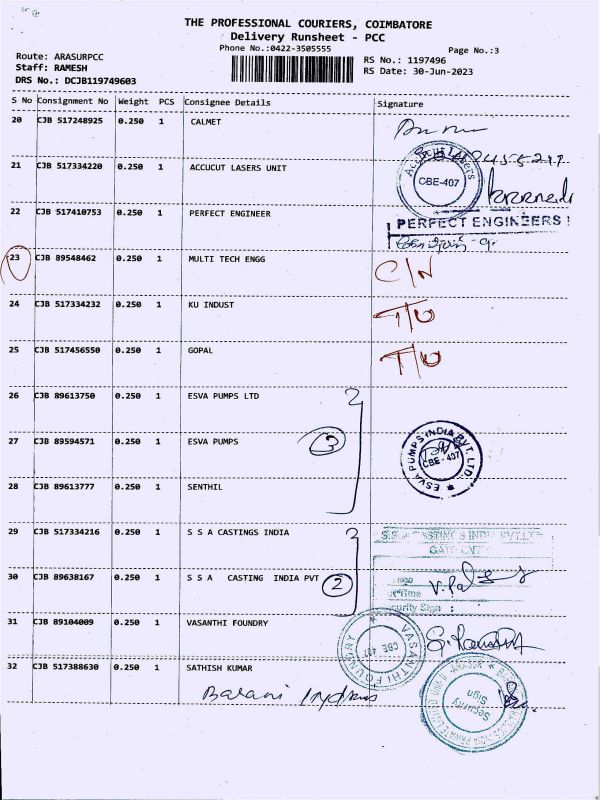 THE PROFESSIONAL COURIERS, COIMBATORE
Delivery Runsheet - PCC
Phone No.:0422-3505555
Page No.:3
Route: ARASURPCC
Staff: RAMESH
DRS No.: DCJB119749603
RS No.: 1197496
RS Date: 30-Jun-2023
S No Consignment No Weight PCS Consignee Details Signature
20 CJB 517248925 0.250 1 CALMET
21 CJB 517334220 0.250 1 ACCUCUT LASERS UNIT
CBE-407
22 CJB 517410753 0.250 1 PERFECT ENGINEER
PERFECT ENGINEERS
23 CJB 89548462 0.250 1 MULTI TECH ENGG C/N
24 CJB 517334232 0.250 1 KU INDUST T/U
25 CJB 517456550 0.250 1 GOPAL T/U
26 CJB 89613750 0.250 1 ESVA PUMPS LTD
27 CJB 89594571 0.250 1 ESVA PUMPS 3
ESVA PUMPS INDIA PVT. LTD.
CBE-407
28 CJB 89613777 0.250 1 SENTHIL
29 CJB 517334216 0.250 1 S S A CASTINGS INDIA
30 CJB 89638167 0.250 1 S S A CASTING INDIA PVT 2
Security Sign :
31 CJB 89104009 0.250 1 VASANTHI FOUNDRY
VASANTHI FOUNDRY
CBE 407
32 CJB 517388630 0.250 1 SATHISH KUMAR
Security
Sign